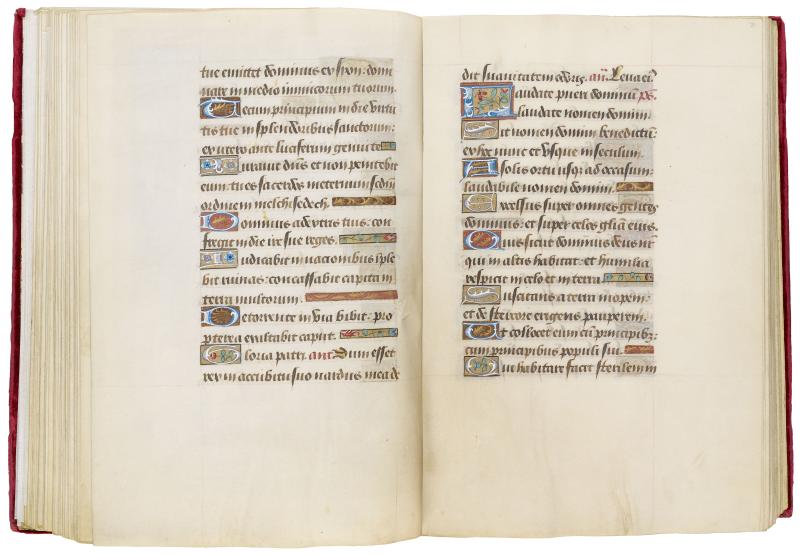 tue emittet dominus ex syon: domi
nare in medio inimicorum tuorum.
Tecum principium in die virtu
tis tue in splendoribus sanctorum:
ex utero ante luciferum genui te
Iuravit dñs et non penitebit
eum: tu es sacerdos in eternum scdm̄
ordinem melchisedech.
Dominus a dextris tuis: con
fregit in die ire sue reges.
Iudicabit in nacionibus imple
bit ruinas: conqassabit capita in
terra multorum.
De torrente in via bibit: pro
pterea exaltabit caput.
Gloria patri. ant. Dum esset
rex in accubitu suo nardus mea de
dit suavitatem odoris. añ. Leva eiꝰ
Laudate pueri dominū ps.
laudate nomen domini.
Sit nomen domini benedictū:
ex hoc nunc et usque in seculum.
A solis ortu usqꝫ ad occasum:
laudabile nomen domini.
Excelsus super omnes gentes
dominus: et super celos gl̄ia eius.
Quis sicut dominus deus nr̄
qui in altis habitat: et humilia
respicit in celo et in terra
Suscitans a terra inopem:
et de stercore erigens pauperem.
Ut collocet eum cū principibꝫ:
cum principibus populi sui.
Qui habitare facit sterilem in